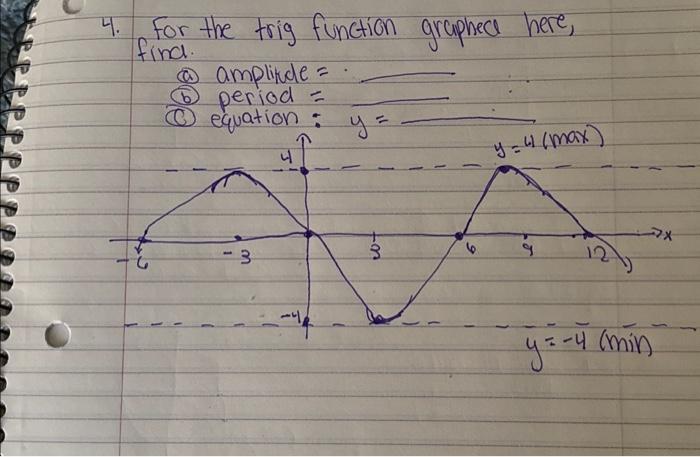 4. For the trig function graphed here,
find.
ⓐ amplitude =
ⓑ period =
ⓒ equation : y =
4
y=4 (max)
-6
-3
3
6
9
12
x
-4
y=-4 (min)